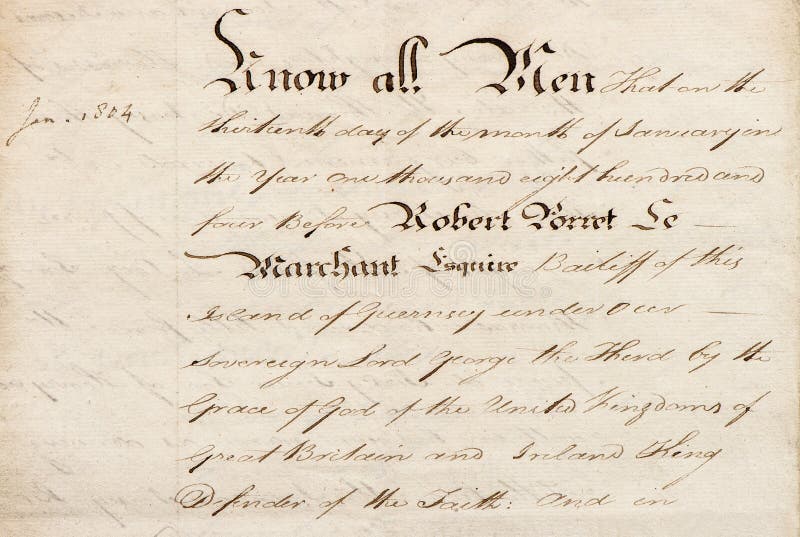 Know all Men That on the
Jan. 1804
thirteenth day of the month of January in
the Year One thousand eight hundred and
four Before Robert Porret Le
Marchant Esquire Bailiff of this
Island of Guernsey under our
Sovereign Lord George the Third by the
Grace of God of the United Kingdoms of
Great Britain and Ireland King
Defender of the Faith: And in